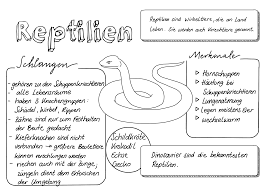 Reptilien
Reptilie sind Wirbeltiere, die an Land
Leben. Sie werden auch Kriechtiere genannt.
Schlangen
- gehören zu den Schuppenkriechtieren
- alle Lebensräume
- haben 3 Knochengruppen:
Schädel, Wirbel, Rippen
- Zähne sind nur zum Festhalten
der Beute gedacht
- Kieferknochen sind nicht
verbunden → größere Beutetiere
können verschlungen werden
- riechen auch mit der Zunge,
züngeln dient dem Erforschen
der Umgebung
Merkmale:
• Hornschuppen
• Häutung bei
Schuppenkriechtieren
• Lungenatmung
• Legen meist Eier
• wechselwarm
Schildkröte
Krokodil
Echse
Gecko
Dinosaurier sind die bekanntesten
Reptilien.